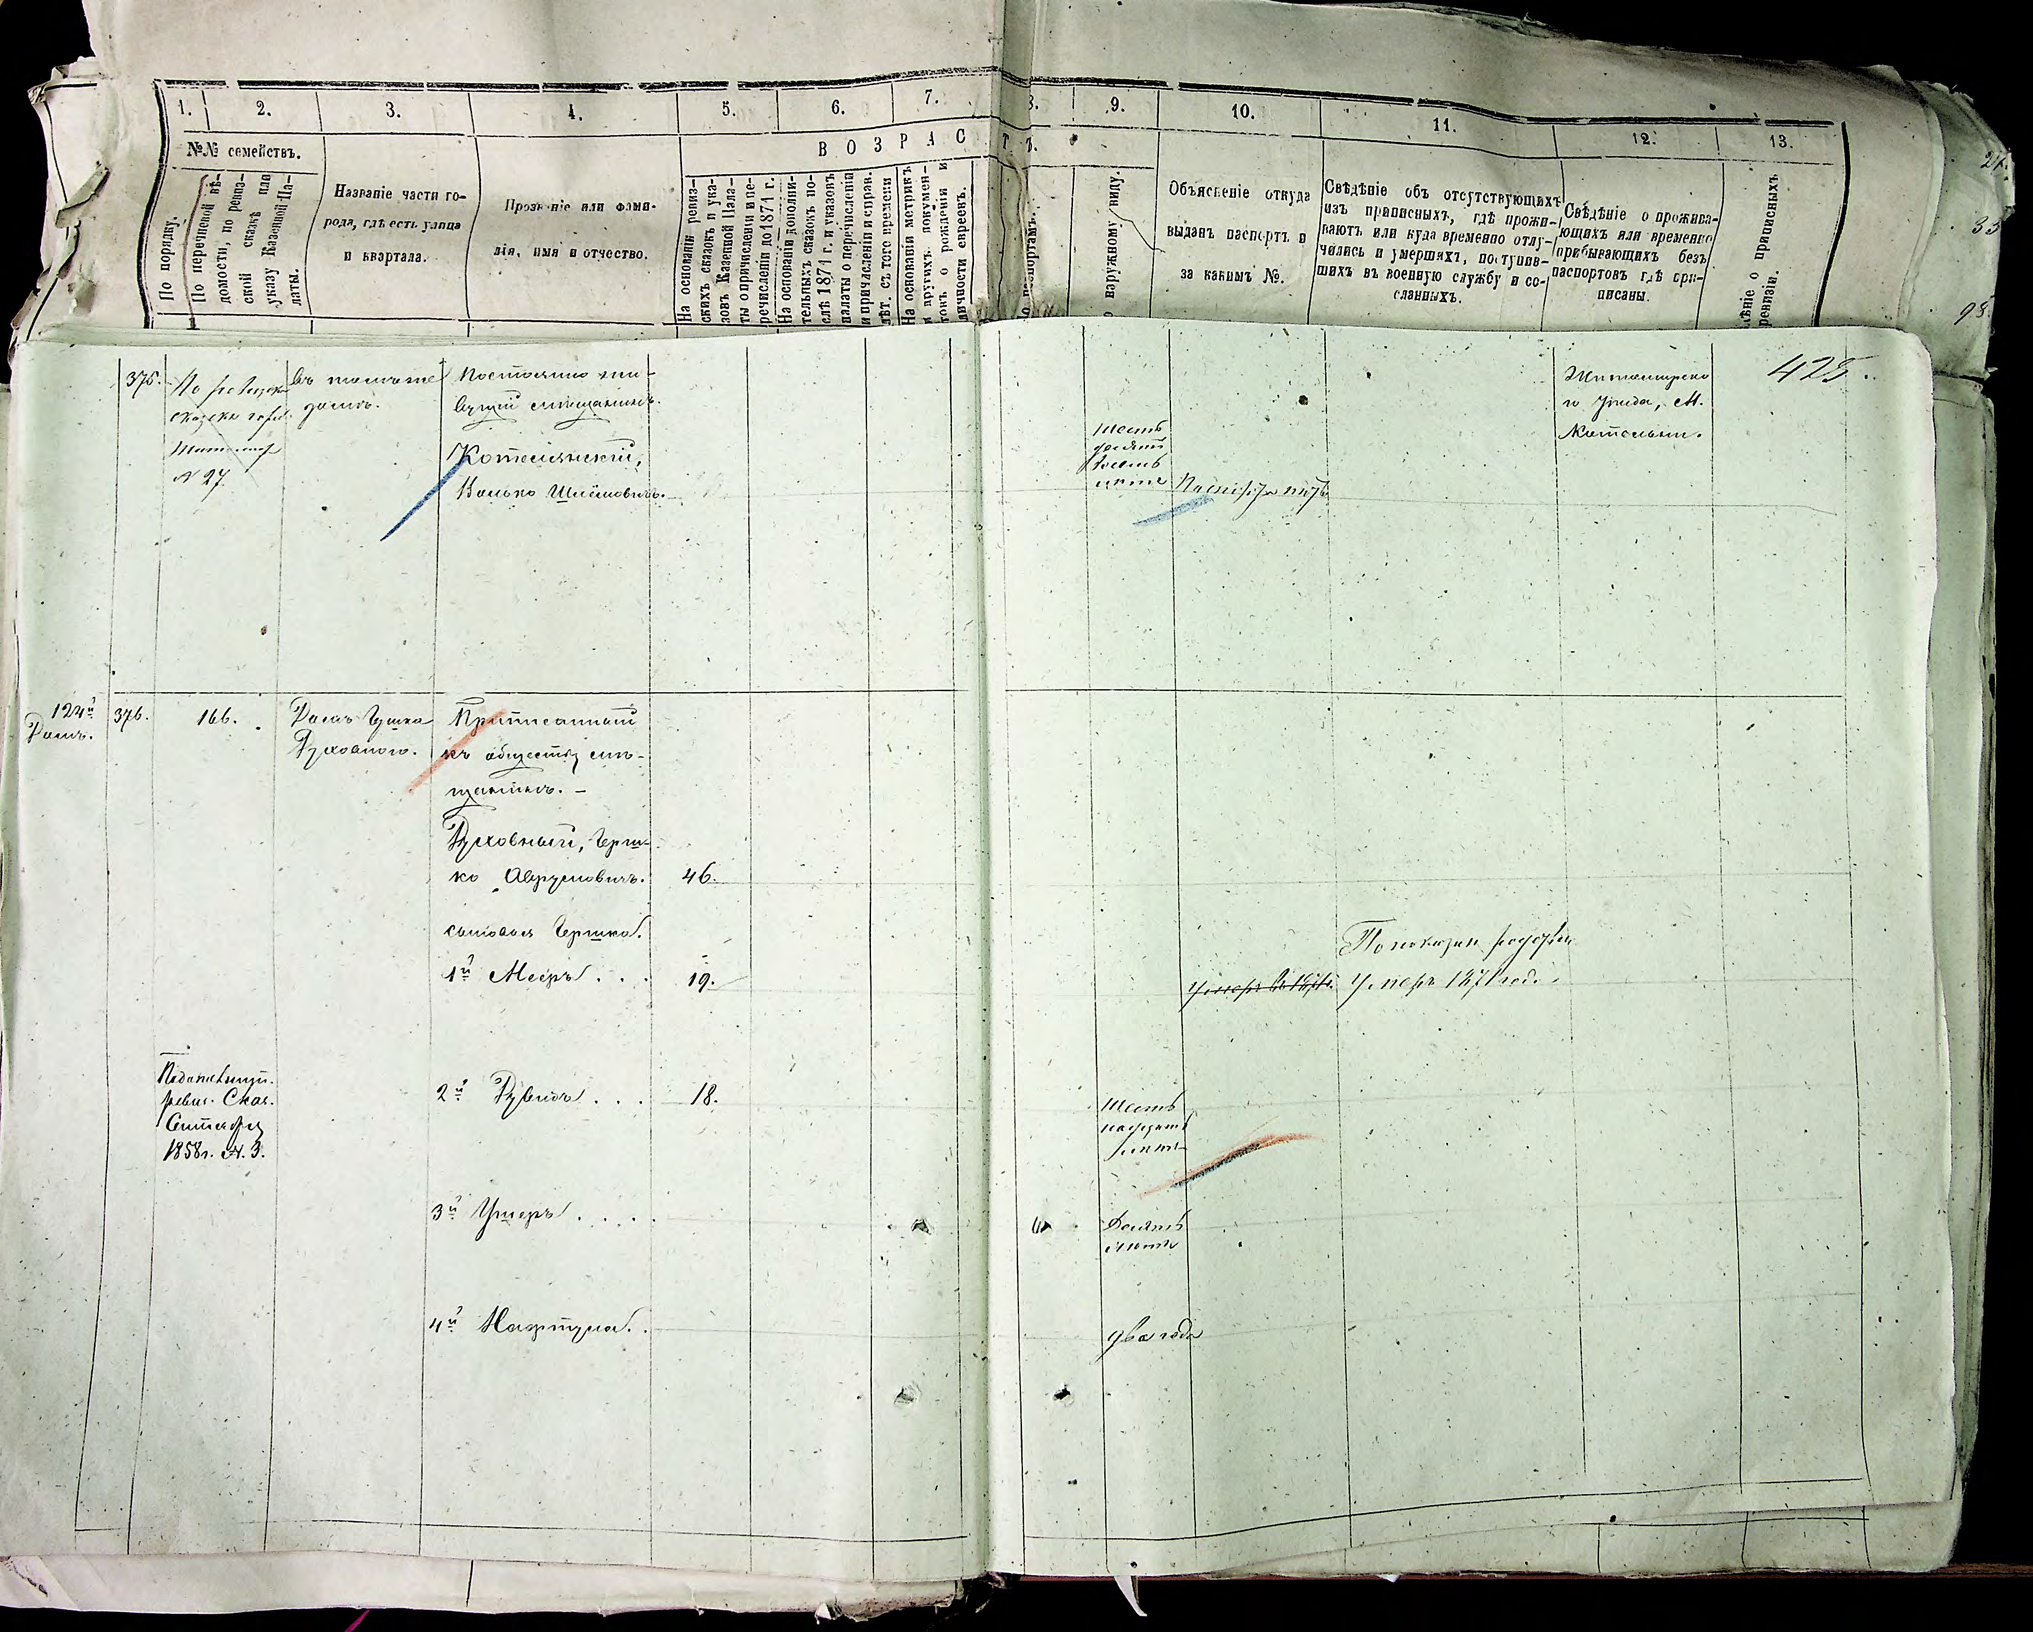 1. 2. 3. 4. 5. 6. 7. 8. 9. 10. 11. 12. 13.
№№ семействъ.
ВОЗРАСТЪ.
По порядку.
По перечневой вѣ-
домости, по ревиз-
ской сказкѣ или
указу Казенной Па-
латы.
Названіе части го-
рода, гдѣ есть улица
и квартала.
Прозваніе или фами-
лія, имя и отчество.
На основаніи ревиз-
скихъ сказокъ и ука-
зовъ Казенной Пала-
ты о причисленіи и пе-
речисленіи до 1871 г.
На основаніи дополни-
тельныхъ сказокъ по-
слѣ 1871 г. и указовъ
палаты о перечисленіи
и причисленіи и справ.
лѣт. съ того времени
На основаніи метрикъ
и другихъ докумен-
товъ о рожденіи и
личности евреевъ.
наружному виду.
Объясненіе откуда
выданъ паспортъ и
за какимъ №.
Свѣдѣніе объ отсутствующихъ
изъ приписныхъ, гдѣ прожи-
ваютъ или куда временно отлу-
чились и умершихъ, поступив-
шихъ въ военную службу и со-
сланныхъ.
Свѣдѣніе о прожива-
ющихъ или временно
прибывающихъ безъ
паспортовъ гдѣ при-
писаны.
о приписныхъ
ревизіи.
375.
По ревизск.
сказкѣ
№ 27.
въ томъ же
домѣ.
Постоянно жи-
вущій мѣщанинъ.
Котелянскій,
Шлёмовичъ.
Шесть
десятъ
восемь
лѣтъ
Житомирска
го уѣзда, М.
Котельни.
428.
124й
Домъ.
376.
166.
Домъ Гершка
Духовного.
Приписанный
къ обществу мѣ-
щанинъ. –
Духовный, Герш-
ко Аврумовичъ. 46.
сыновья Гершка.
1й Мееръ . . . 19.
Умеръ 1871 года.
2й Рувинъ . . . 18.
Подополнит.
ревиз. Сказ.
Сентября
1858 г. №. 3.
Шест
надцать
лѣтъ
3й Ушеръ . . . .
Десять
лѣтъ
4й Нафтула . .
два года